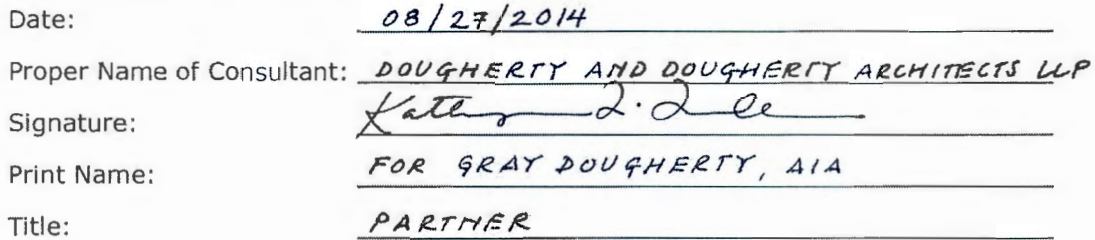 Date: 08/27/2014
Proper Name of Consultant: DOUGHERTY AND DOUGHERTY ARCHITECTS LLP
Signature:
Print Name: FOR GRAY DOUGHERTY, AIA
Title: PARTNER